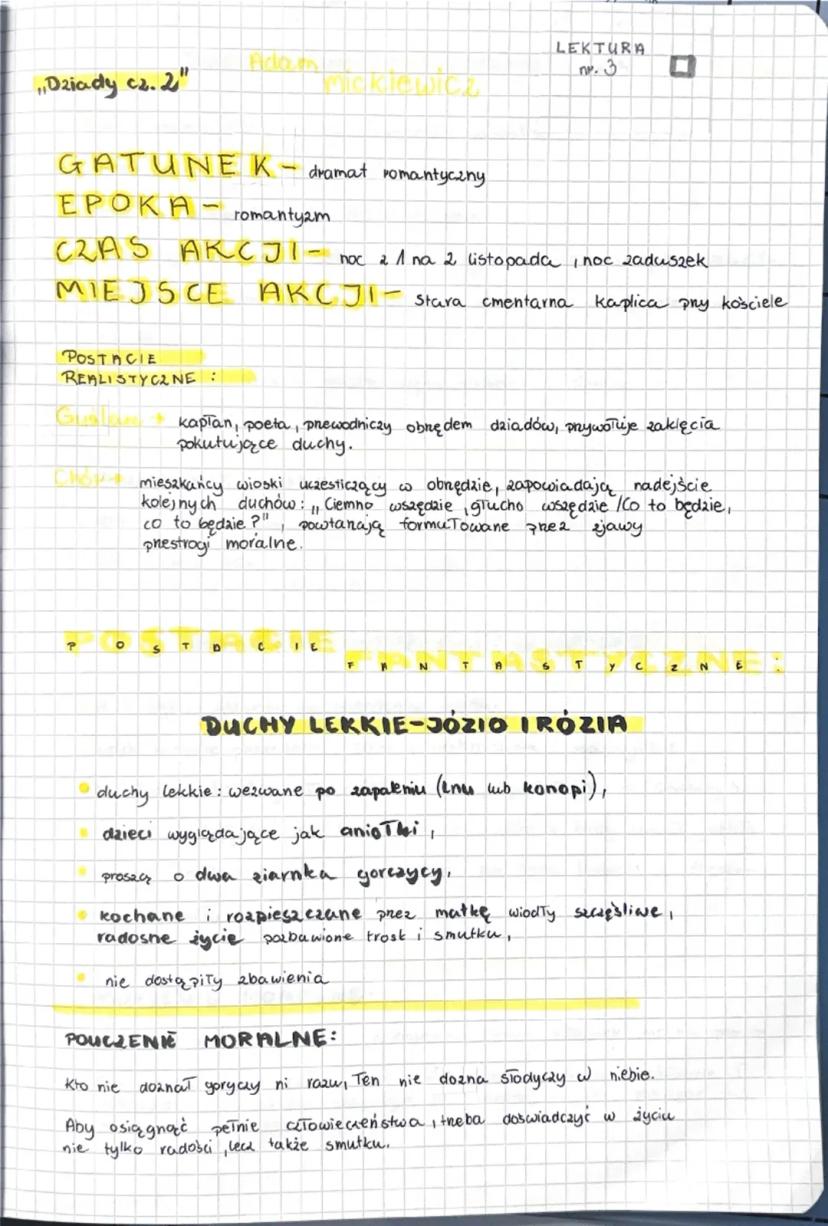 LEKTURA
nr. 3
„Dziady cz. 2"
Adam
Mickiewicz
GATUNEK - dramat romantyczny
EPOKA - romantyzm
CZAS AKCJI - noc z 1 na 2 listopada, noc zaduszek
MIEJSCE AKCJI - stara cmentarna kaplica przy kościele
POSTACIE
REALISTYCZNE:
Guslarz → kapłan, poeta, przewodniczy obrzędem dziadów, przywołuje zaklęcia
pokutujące duchy.
Chór → mieszkańcy wioski uczesticzący w obrzędzie, zapowiadają nadejście
kolejnych duchów: „Ciemno wszędzie, głucho wszędzie /Co to będzie,
co to będzie?", powtarzają formułowane przez zjawy
przestrogi moralne.
POSTACIE
FANTASTYCZNE:
DUCHY LEKKIE-JÓZIO I RÓZIA
• duchy lekkie: wezwane po zapaleniu (lnu lub konopi),
• dzieci wyglądające jak aniołki,
• proszą o dwa ziarnka gorczycy,
• kochane i rozpieszczane przez matkę wiodły szczęśliwe,
radosne życie pozbawione trosk i smutku,
• nie dostąpiły zbawienia
POUCZENIE MORALNE:
Kto nie doznał goryczy ni razu, Ten nie dozna słodyczy w niebie.
Aby osiągnąć pełnie człowieczeństwa, trzeba doświadczyć w życiu
nie tylko radości, lecz także smutku.